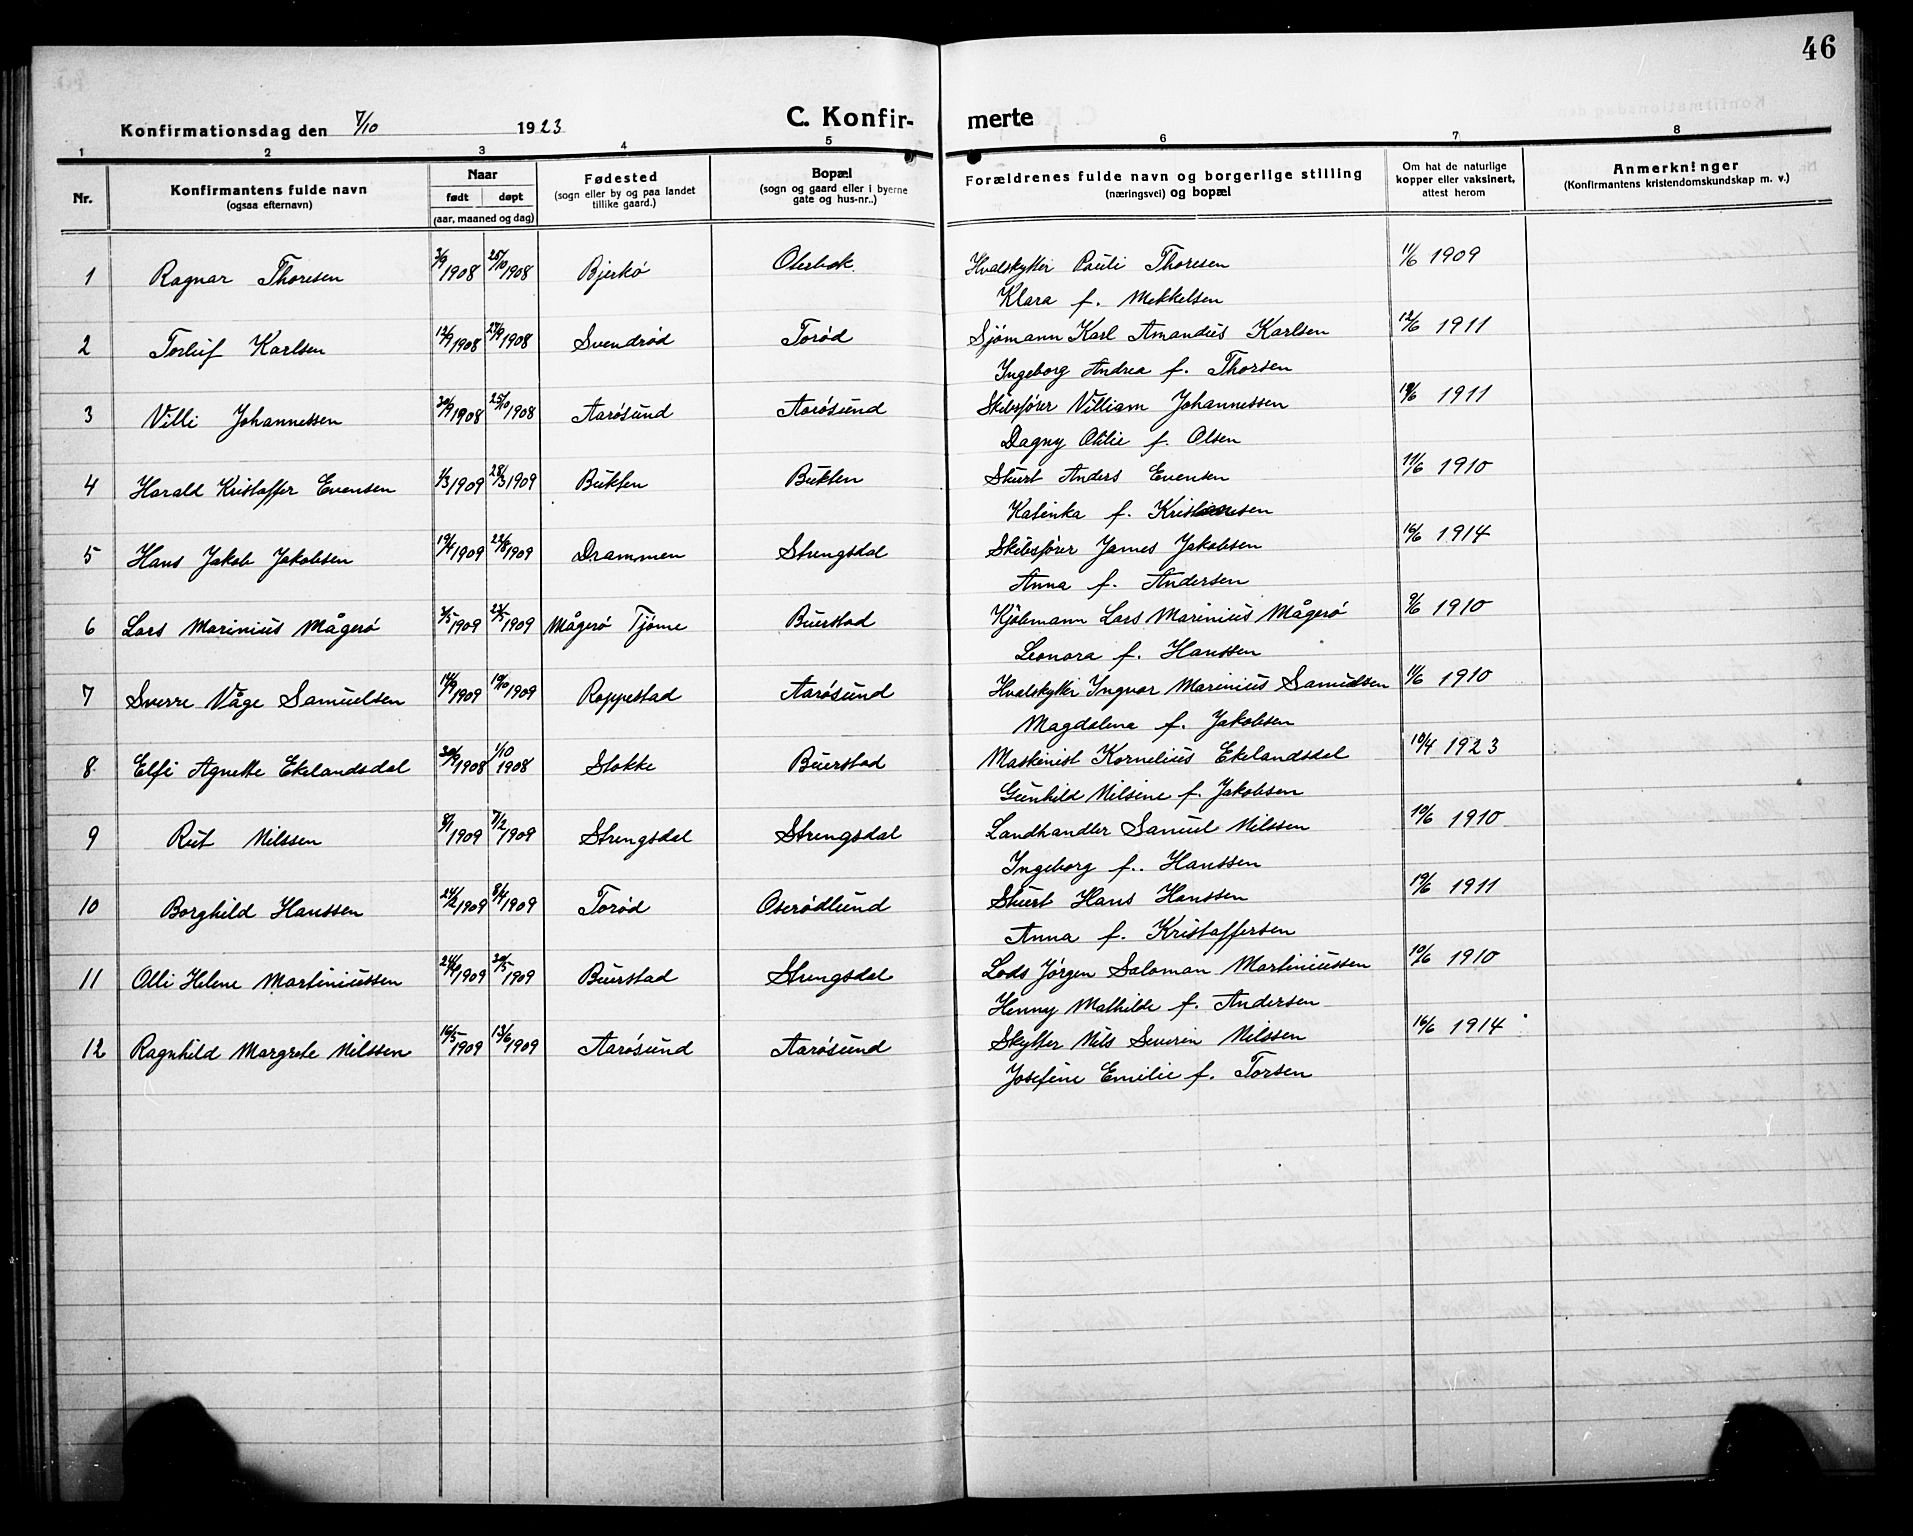 46
Konfirmationsdag den 7/10 1923 C. Konfir- merte
1 2 3 4 5 6 7 8
Nr. Konfirmantens fulde navn (ogsaa efternavn) Naar født døpt (aar, maaned og dag) Fødested (sogn eller by og paa landet tillike gaard.) Bopæl (sogn og gaard eller i byerne gate og hus-nr..) Forældrenes fulde navn og borgerlige stilling (næringsvei) og bopæl Om hat de naturlige kopper eller vaksinert, attest herom Anmerkninger (Konfirmantens kristendomskundskap m. v.)
1 Ragnar Thoresen 3/9 1908 25/10 1908 Bjerkö Oterbek Hvalskytter Pauli Thoresen 11/6 1909
Klara f. Mekkelsen
2 Torleif Karlsen 12/9 1908 27/9 1908 Svendrød Torød Sjömann Karl Amandus Karlsen 12/6 1911
Ingeborg Andrea f. Thorsen
3 Villi Johannessen 20/9 1908 25/10 1908 Aarösund Aarösund Skibsfører Villiam Johannessen 19/6 1911
Dagny Otilie f. Olsen
4 Harald Kristoffer Evensen 1/3 1909 28/3 1909 Bukten Bukten Stuert Anders Evensen 11/6 1910
Katinka f. Kristiansen
5 Hans Jakob Jakobsen 19/4 1909 22/8 1909 Drammen Strengsdal Skibsfører James Jakobsen 16/6 1914
Anna f. Andersen
6 Lars Marinius Mågerö 3/5 1909 23/5 1909 Mågerö Tjöme Buerstad Kjöbmann Lars Marinius Mågerö 9/6 1910
Leonora f. Hanssen
7 Sverre Våge Samuelsen 14/9 1909 19/10 1909 Roppestad Aarösund Hvalskytter Ingvar Marinius Samuelsen 11/6 1910
Magdalena f. Jakobsen
8 Elfi Agnette Ekelandsdal 30/9 1908 1/10 1908 Stokke Buerstad Maskinist Kornelius Ekelandsdal 10/4 1923
Gunhild Nilsine f. Jakobsen
9 Rut Nilssen 8/1 1909 7/2 1909 Strengsdal Strengsdal Landhandler Samuel Nilssen 10/6 1910
Ingeborg f. Hanssen
10 Borghild Hanssen 24/2 1909 8/4 1909 Torød Oserødlund Stuert Hans Hanssen 19/6 1911
Anna f. Kristoffersen
11 Olli Helene Martiniussen 24/4 1909 20/5 1909 Buerstad Strengsdal Lods Jörgen Saloman Martiniussen 10/6 1910
Henny Mathilde f. Andersen
12 Ragnhild Margrete Nilssen 16/5 1909 13/6 1909 Aarösund Aarösund Skytter Nils Severin Nilssen 16/6 1914
Josefine Emilie f. Torsen